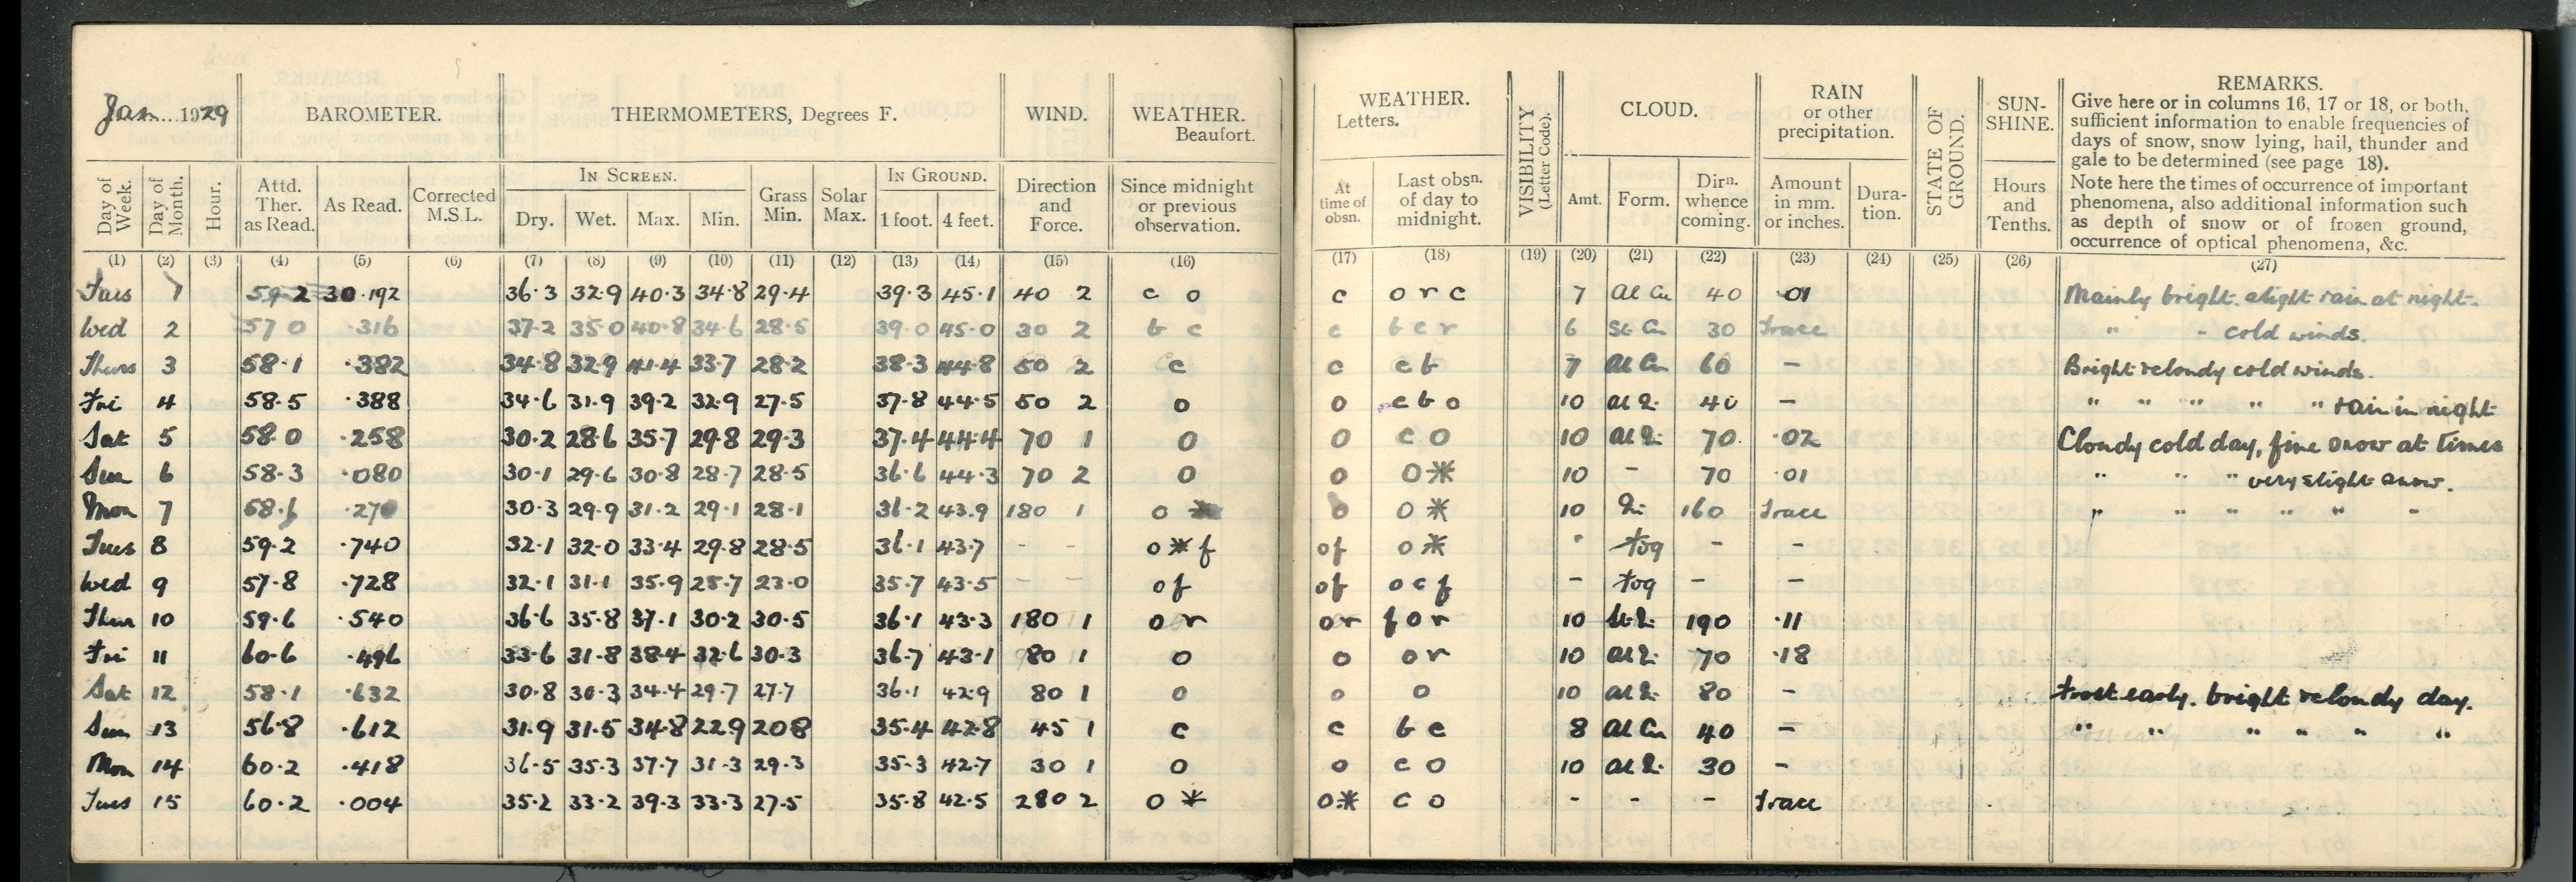 Jan...1929
BAROMETER.
THERMOMETERS, Degrees F.
WIND.
WEATHER.
Beaufort.
Day of Week.
Day of Month.
Hour.
Attd. Ther. as Read.
As Read.
Corrected M.S.L.
IN SCREEN.
Dry. Wet. Max. Min.
Grass Min.
Solar Max.
IN GROUND.
1 foot. 4 feet.
Direction and Force.
Since midnight or previous observation.
WEATHER.
Letters.
At time of obsn.
Last obsn. of day to midnight.
VISIBILITY (Letter Code).
CLOUD.
Amt. Form. Dirn. whence coming.
RAIN
or other
precipitation.
Amount in mm. or inches.
Duration.
STATE OF GROUND.
SUN-
SHINE.
Hours and Tenths.
REMARKS.
Give here or in columns 16, 17 or 18, or both,
sufficient information to enable frequencies of
days of snow, snow lying, hail, thunder and
gale to be determined (see page 18).
Note here the times of occurrence of important
phenomena, also additional information such
as depth of snow or of frozen ground,
occurrence of optical phenomena, &c.
(1) (2) (3) (4) (5) (6) (7) (8) (9) (10) (11) (12) (13) (14) (15) (16) (17) (18) (19) (20) (21) (22) (23) (24) (25) (26) (27)
Tues 1 59.2 30.192 36.3 32.9 40.3 34.8 29.4 39.3 45.1 40 2 c o c o r c 7 Al Cu 40 .01 Mainly bright. slight rain at night.
Wed 2 57 0 .316 37.2 35.0 40.8 34.6 28.5 39.0 45.0 30 2 b c c b c r 6 St Cu 30 trace " - cold winds.
Thurs 3 58.1 .382 34.8 32.9 41.4 33.7 28.2 38.3 44.8 50 2 c c c b 7 Al Cu 60 - Bright & cloudy cold winds.
Fri 4 58.5 .388 34.6 31.9 39.2 32.9 27.5 37.8 44.5 50 2 o o c b o 10 Al 40 - " " " " " rain in night
Sat 5 58.0 .258 30.2 28.6 35.7 29.8 29.3 37.4 44.4 70 1 o o c o 10 Al 70. .02 Cloudy cold day, fine snow at times
Sun 6 58.3 .080 30.1 29.6 30.8 28.7 28.5 36.6 44.3 70 2 o o o* 10 - 70 .01 " " " very slight snow.
Mon 7 58.6 .270 30.3 29.9 31.2 29.1 28.1 36.2 43.9 180 1 o * o o * 10 160 trace " " " " " "
Tues 8 59.2 .740 32.1 32.0 33.4 29.8 28.5 36.1 43.7 - - o * f of o * fog - -
Wed 9 57.8 .728 32.1 31.1 35.9 25.7 23.0 35.7 43.5 - - of of o c f - fog - -
Thur 10 59.6 .540 36.6 35.8 37.1 30.2 30.5 36.1 43.3 180 1 o r o r f o r 10 190 .11
Fri 11 60.6 .496 33.6 31.8 38.4 32.6 30.3 36.7 43.1 80 1 o o o r 10 Al 70 .18
Sat 12 58.1 .632 30.8 30.3 34.4 29.7 27.7 36.1 42.9 80 1 o o o 10 Al 80 - Frost early. bright & cloudy day.
Sun 13 56.8 .612 31.9 31.5 34.8 22.9 20.8 35.4 42.8 45 1 c c b c 8 Al Cu 40 - " " " " " "
Mon 14 60.2 .418 36.5 35.3 37.7 31.3 29.3 35.3 42.7 30 1 o o c o 10 Al 30 -
Tues 15 60.2 .004 35.2 33.2 39.3 33.3 27.5 35.8 42.5 280 2 o * o* c o - - - trace